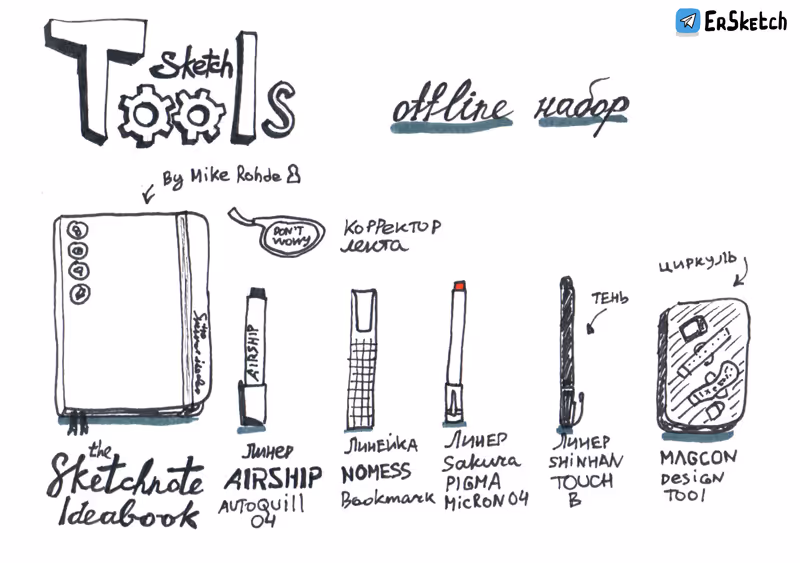 ErSketch
Sketch
Tools
offline набор
By Mike Rohde
DON'T
WOWY
Корректор
лента
циркуль
тень
AIRSHIP
the
Sketchnote
Ideabook
Линер
AIRSHIP
AUTOQUILL
04
Линейка
NOMESS
Bookmark
Линер
Sakura
PIGMA
MICRON 04
Линер
SHINHAN
TOUCH
B
MAGCON
DESIGN
TOOL